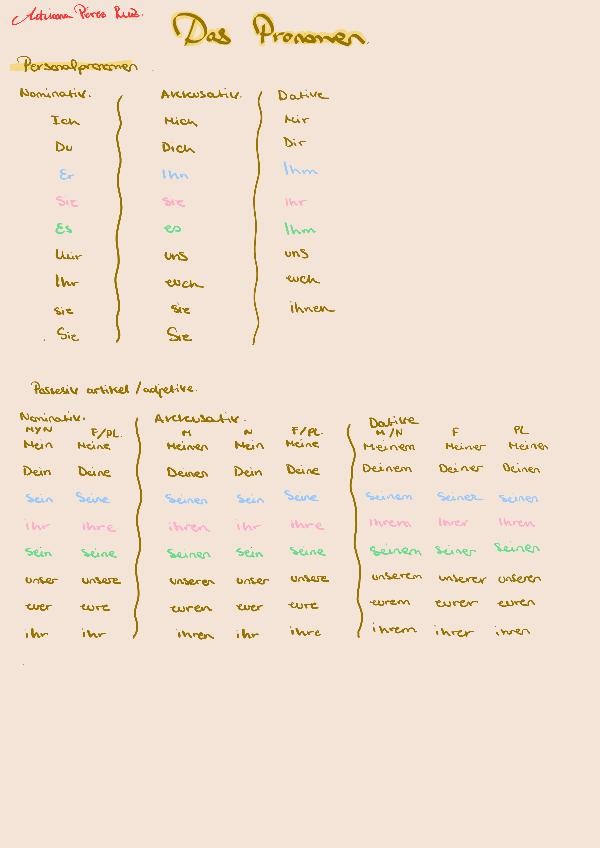 Adriana Pérez Ruiz.
Das Pronomen.
Personalpronomen
Nominativ. Akkusativ. Dative
Ich Mich Mir
Du Dich Dir
Er Ihn Ihm
Sie sie Ihr
Es es Ihm
Wir uns uns
Ihr euch euch
sie sie ihnen
Sie Sie
Possesiv artikel / adjetive.
Nominativ. Akkusativ. Dative
M y N F/PL. M N F/PL. M/N F PL
Mein Meine Meinen Mein Meine Meinem Meiner Meinen
Dein Deine Deinen Dein Deine Deinem Deiner Deinen
Sein Seine Seinen Sein Seine Seinem Seiner Seinen
ihr ihre ihren ihr ihre Ihrem Ihrer Ihren
sein seine seinen sein seine seinem seiner seinen
unser unsere unseren unser unsere unserem unserer unseren
euer eure euren euer eure eurem eurer euren
ihr ihr ihren ihr ihre ihrem ihrer ihren